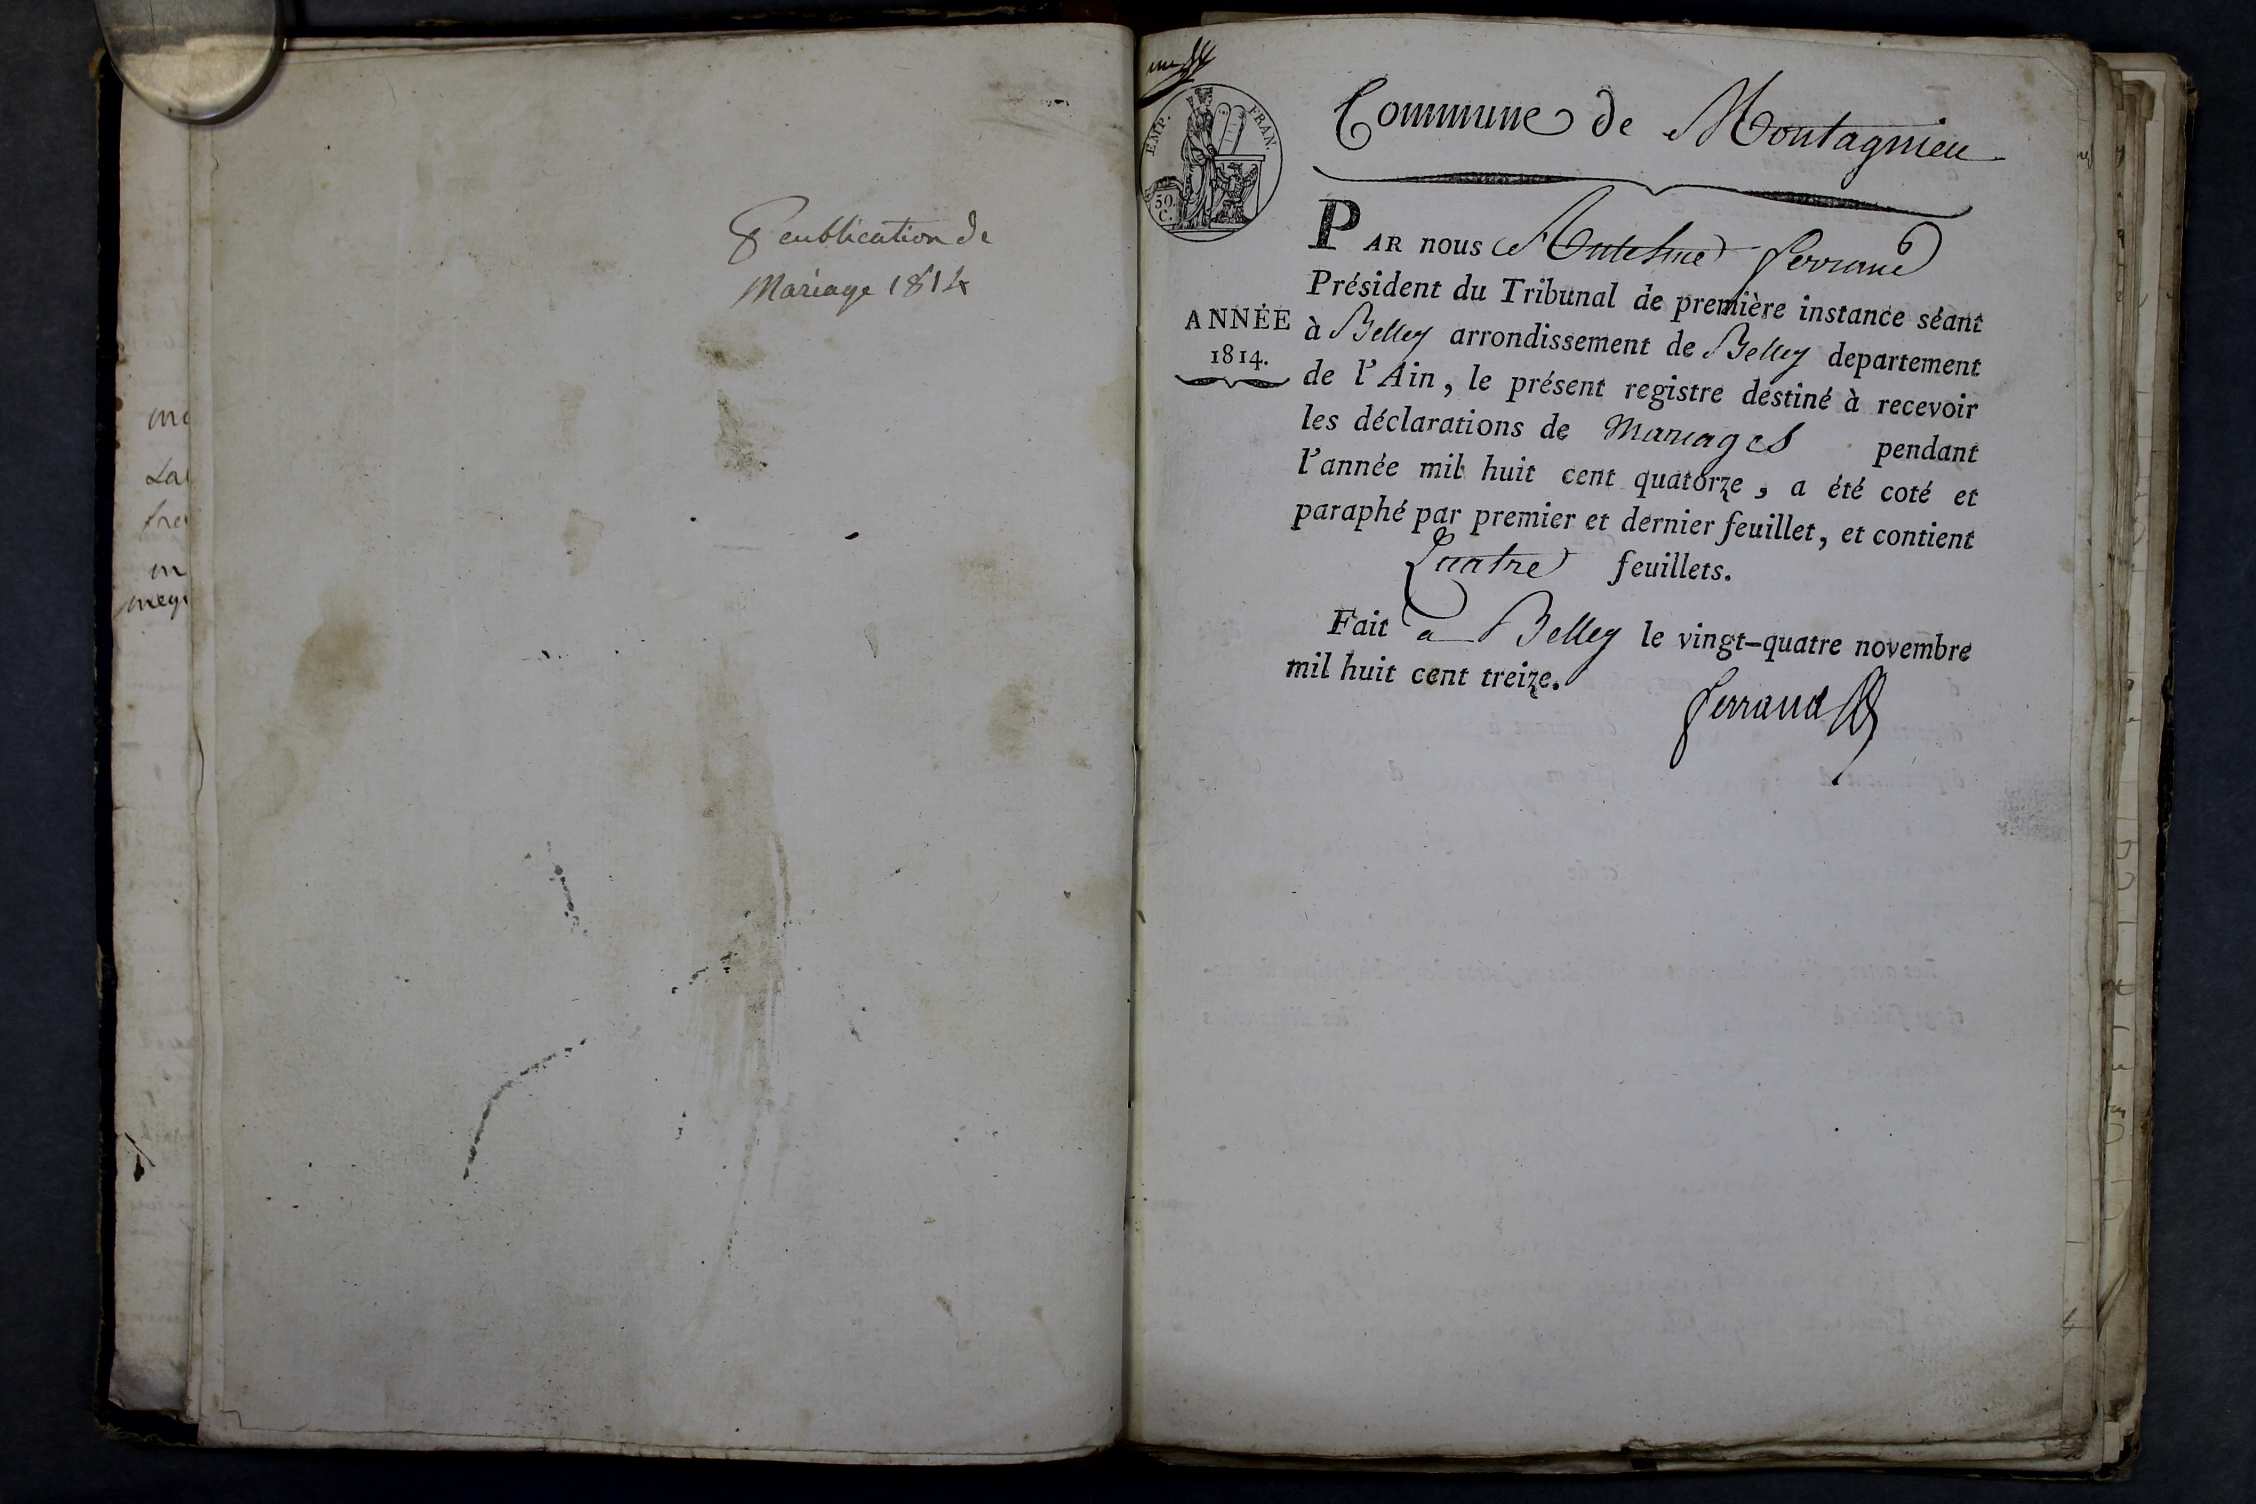 Peublication de
Mariage 1814
EMP. FRAN.
50.
C.
Commune de Montagnieu
PAR nous Anthelme ferrand
Président du Tribunal de première instance séant
ANNÉE
1814.
à Belley arrondissement de Belley departement
de l'Ain, le présent registre destiné à recevoir
les déclarations de Mariages pendant
l'année mil huit cent quatorze, a été coté et
paraphé par premier et dernier feuillet, et contient
Quatre feuillets.
Fait a Belley le vingt-quatre novembre
mil huit cent treize.
ferrand